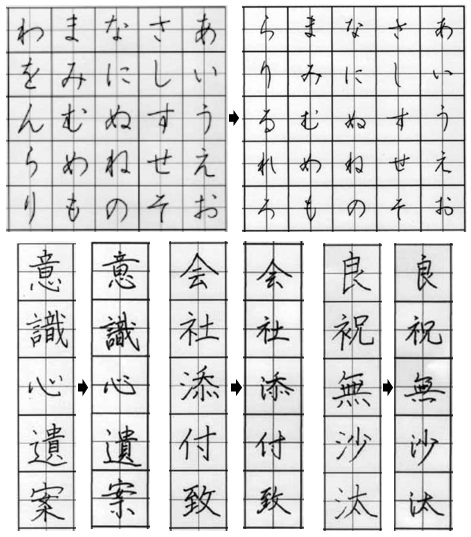 あいうえお
さしすせそ
なにぬねの
まみむめも
わをんらり
あいうえお
さしすせそ
なにぬねの
まみむめも
らりるれろ
意識心遺案
意識心遺案
会社添付致
会社添付致
良祝無沙汰
良祝無沙汰